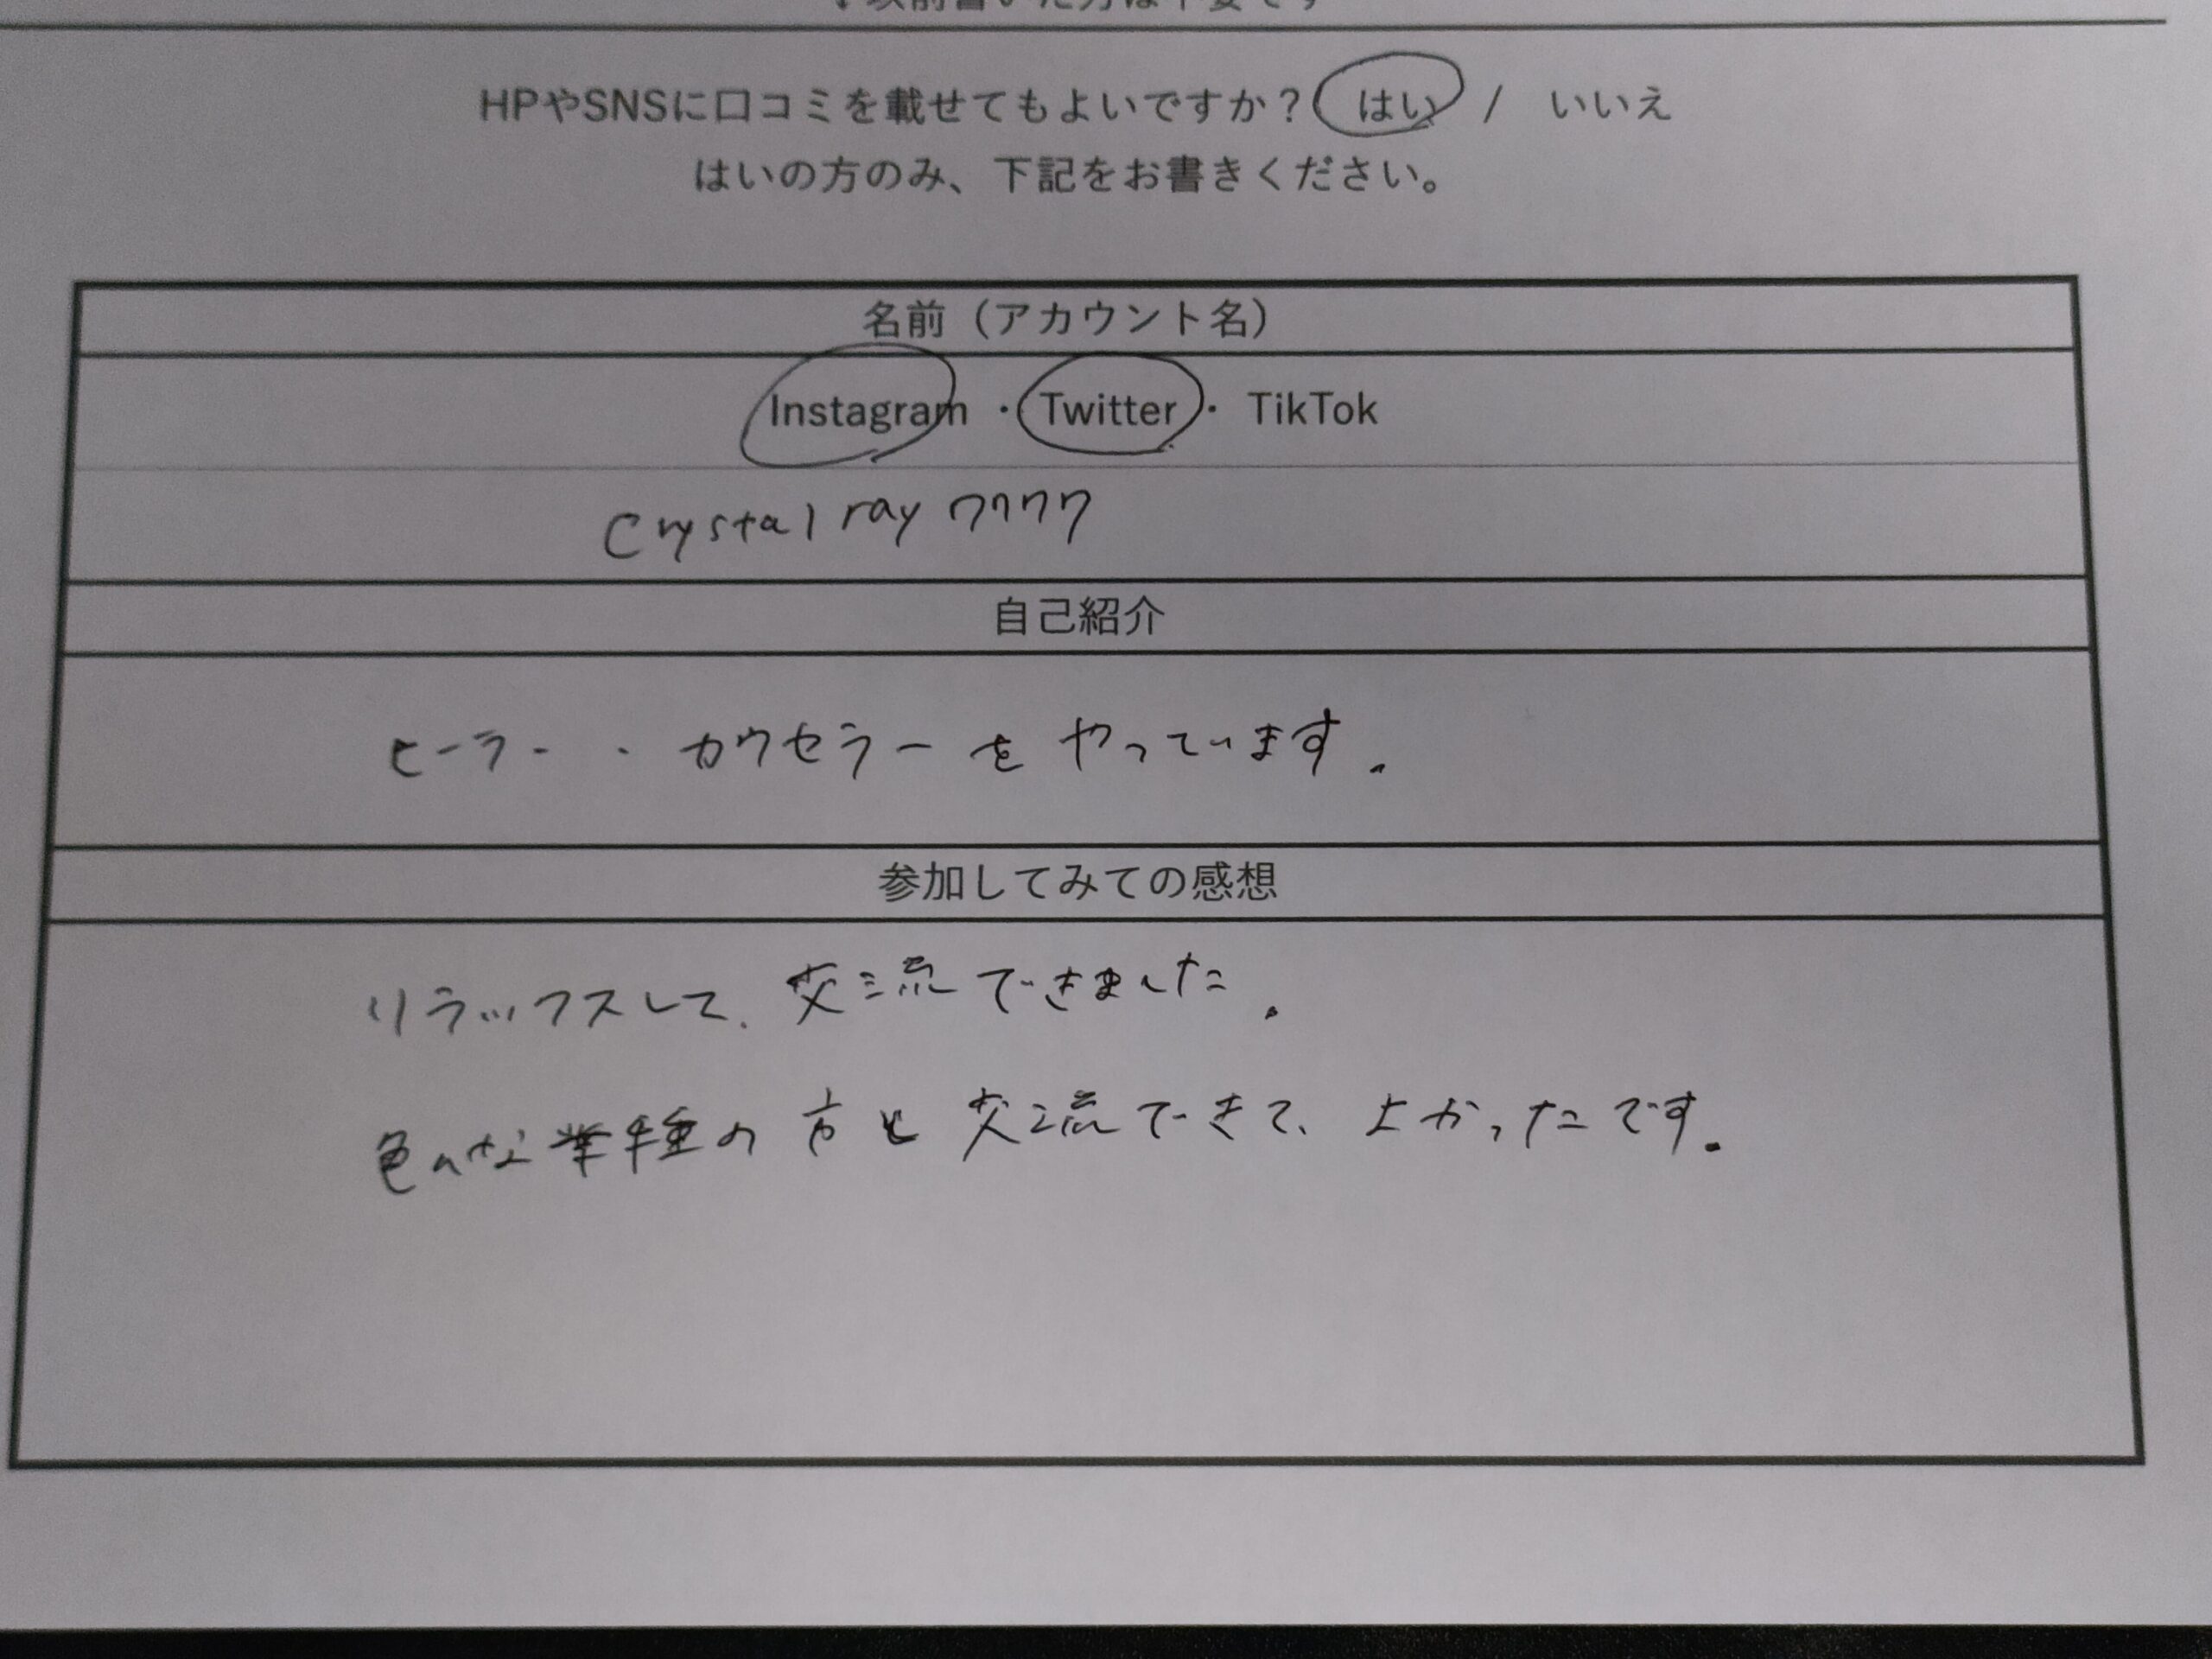 以前書いた方は不要です
HPやSNSに口コミを載せてもよいですか？ はい / いいえ
はいの方のみ、下記をお書きください。
名前（アカウント名）
Instagram ・ Twitter ・ TikTok
Crystal ray 7777
自己紹介
ヒーラー・カウセラーをやっています.
参加してみての感想
リラックスして、交流できました.
色々な業種の方と交流できて、よかったです.